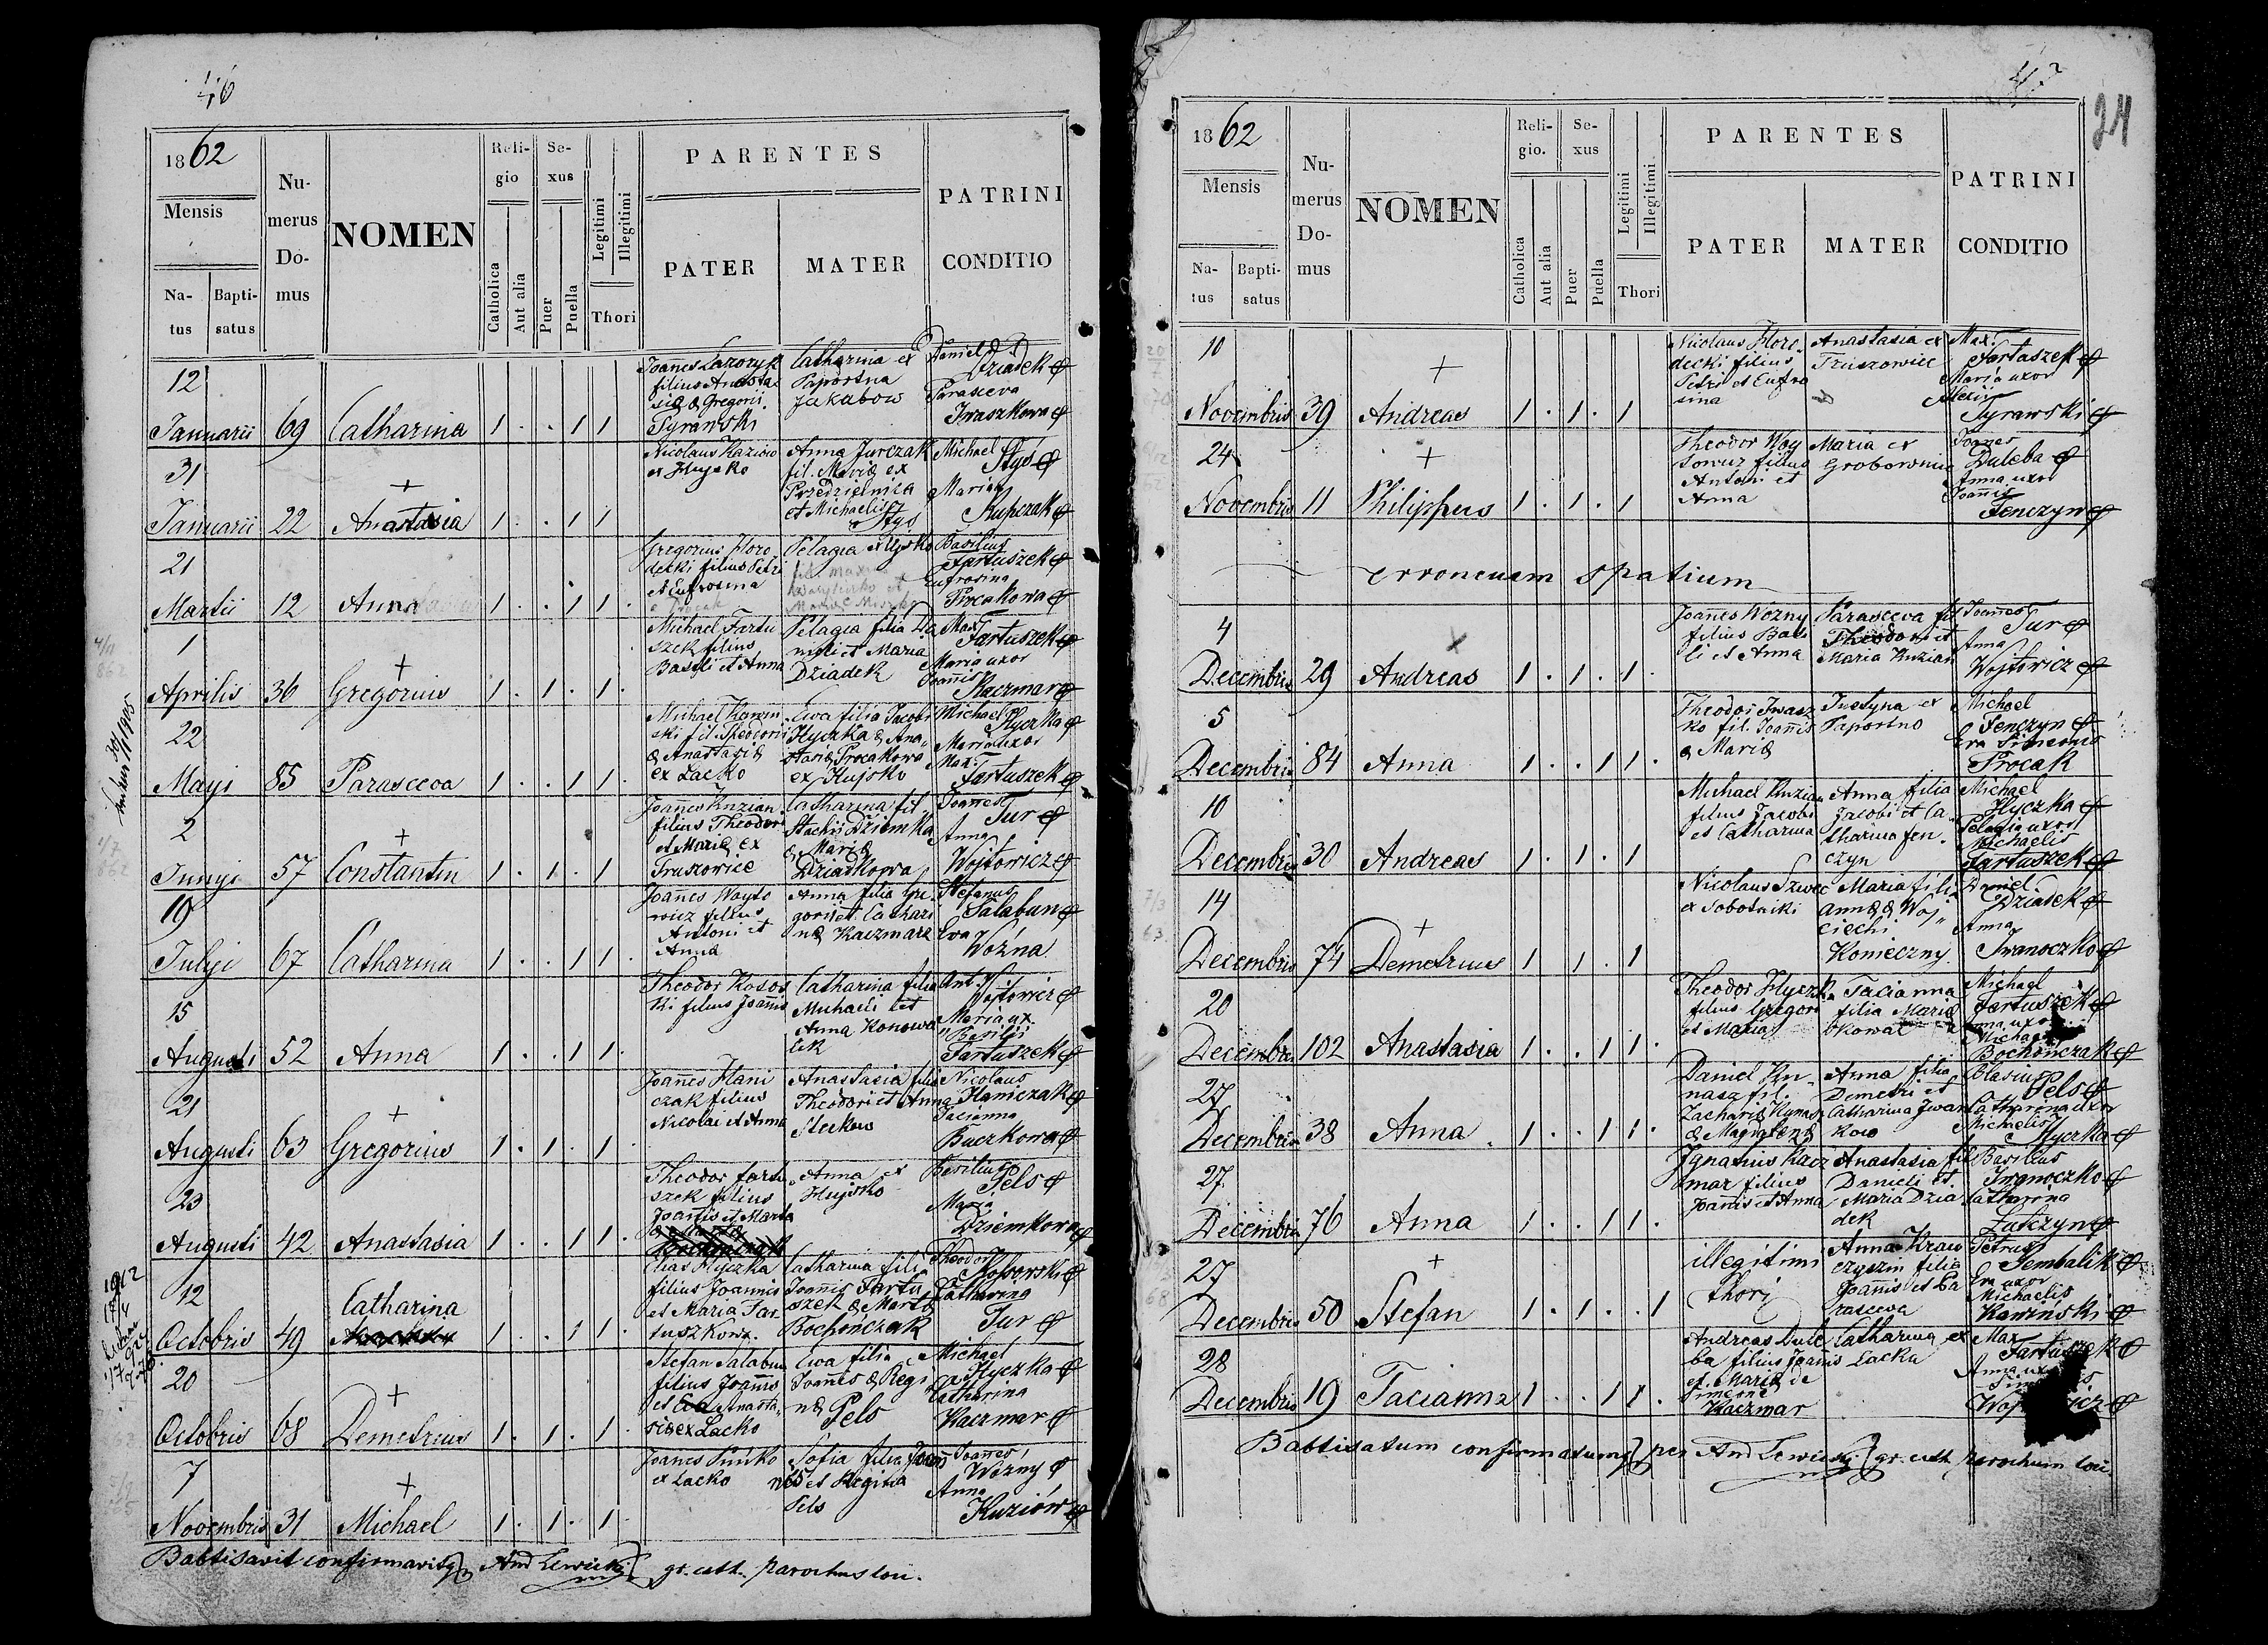 46
1862
Mensis
Na-
tus
Bapti-
satus
Nu-
merus
Do-
mus
NOMEN
Reli-
gio
Catholica
Aut alia
Se-
xus
Puer
Puella
Legitimi
Illegitimi
Thori
PARENTES
PATER
MATER
PATRINI
CONDITIO
12
Januarii 69 Catharina 1 . . 1 1
Joannes Lazoryk
filius Anasta
siæ & Gregorii
Tyrawski
Catharina ex
Paportna
Jakubow
Daniel
Dziadek
Parasceva
Iwaszkowa
31
Januarii 22 Anastasia 1 . . 1 1
Nicolaus Kaziow
ex Hujsko
Anna Jurczak
fil. Mariæ ex
Przedzielnica
et Michaelis
Stys
Michael
Stys
Maria
Kupczak
21
Martii 12 Anna 1 . . 1 1 .
Gregorius Horo
decki filius Petri
et Eufrosina
Pelagia
Basilius
Fartuszek
Eufrosina
Procakowa
1
Aprilis 36 Gregorius 1 . 1 . 1 .
Michael Fartu
szek filius
Basilii et Anna
Pelagia filia Da
nieli et Maria
Dziadek
Max.
Fartuszek
Maria uxor
Joannis
Kaczmar
22
Maji 85 Parasceva 1 . . 1 1 .
Michael Kamin
ski fil. Theodorii
& Anastasiæ
ex Lacko
Ewa filia Jacobi
Hyczka & Ana-
stasiæ Procakowa
ex Hujsko
Michael
Hyczka
Maria uxor
Max.
Fartuszek
2
Junyi 57 Constantin 1 . 1 . 1
Joannes Kuzian
filius Theodori
et Mariæ ex
Truszowice
Catharina fil-
Stachii Dziemka
& Mariæ
Dziadkowa
Joannes
Tur
Anna
Wojtowicz
19
Julyi 67 Catharina 1 . . 1 1 .
Joannes Woyto
wicz filius
Antoni et
Anna
Anna filia Gre-
gorii et Cathari
næ Kaczmarz
Stefanus
Salabun
Eva
Woźna
15
Augusti 52 Anna 1 . . 1 1 .
Theodor Kosow
ki filius Joannis
Catharina filia
Michaeli et
Anna Konowa
lek
Ant.
Wojtowicz
Maria ux.
Basilii
Fartuszek
21
Augusti 63 Gregorius 1 . 1 . 1 .
Joannes Hani
czak filius
Nicolai et Anna
Anastasia filia
Theodori et Anna
Steckow
Nicolaus
Haniczak
Tacianna
Buczkowa
23
Augusti 42 Anastasia 1 . . 1 1 .
Theodor Fartu
szek filius
Joannis et Marta
Anna ex
Hujsko
Basilius
Pels
Maria
Dziemkowa
12
Octobris 49 Catharina 1 . . 1 1 .
Elias Hyczka
filius Joannis
et Maria Far-
tuszkowa.
Catharina filia
Joannis Fartu
szek & Martæ
Bochończak
Theodor
Kosowski
Catharina
Tur
20
Octobris 68 Demetrius 1 . 1 . 1 .
Stefan Salabun
filius Joannis
et Anasta-
siæ ex Lacko
Ewa filia
Joannis & Regi
næ
Pels
Michael
Hyczka
Catharina
Kaczmar
7
Novembris 31 Michael 1 . 1 . 1 .
Joannes
ex Lacko
Sofia filia Joan
nis et Regina
Pels
Joannes
Wozny
Anna
Kuziów
Babtisavit confirmavitq And Lewicki gr. cath. parochus loci.
47
24
1862
Mensis
Na-
tus
Bapti-
satus
Nu-
merus
Do-
mus
NOMEN
Reli-
gio.
Catholica
Aut alia
Se-
xus
Puer
Puella
Legitimi
Illegitimi.
Thori
PARENTES
PATER
MATER
PATRINI
CONDITIO
10
Novembris 39 Andreas 1 . 1 . 1
Nicolaus Horo-
decki filius
Petri et Eufro
sina
Anastasia ex
Truszowiec
Max.
Fartaszek
Maria uxor
Alexii
Tyrawski
24
Novembris 11 Philippus 1 . 1 . 1
Theodor Woy
towicz filius
Antoni et
Anna
Maria ex
Grobownica
Joannes
Duleba
Anna uxor
Joannis
Fenczyn
erroneuem spatium
4
Decembris 29 Andreas 1 . 1 . 1 .
Joannes Wozny
filius Basi
li et Anna
Parasceva fil
Theodori et
Maria Kuzian
Joannes
Tur
Anna
Wojtowicz
5
Decembris 84 Anna 1 . . 1 1 .
Theodor Iwasz
ko fil. Joannis
& Mariæ
Justyna ex
Paportno
Michael
Fenczyn
Eva Simeonis
Procak
10
Decembris 30 Andreas 1 . 1 . 1
Michael Kuzian
filius Jacobi
et Catharina
Anna filia
Jacobi et Ca-
tharina Fen-
czyn
Michael
Hyczka
Pelagia uxor
Michaelis
Fartuszek
14
Decembris 74 Demetrius 1 1 . 1
Nicolaus Szwec
ex Sobotniki
Maria fili
Annæ & Woj-
ciechi
Konieczny.
Daniel
Dziadek
Anna
Iwanoczko
20
Decembris 102 Anastasia 1 . . 1 1 .
Theodor Hyczka
filius Gregori
et Maria
Tacianna
filia Mariæ
Kowal
Michael
Fartuszek
Anna uxor
Michael
Bochończak
27
Decembris 38 Anna 1 . . 1 1 .
Daniel Ku-
nasz fil.
Zachariæ Kunasz
& Magdalenæ
Anna filia
Demetri et
Catharina Iwan
kow
Blasius
Pels
Catharina uxor
Michaelis
Hyczka
27
Decembris 76 Anna 1 . . 1 1 .
Ignatius Kacz
mar filius
Joannis et Anna
Anastasia fil
Danieli et
Maria Dzia
dek
Basilius
Iwanoczko
Catharina
Zatczyn
27
Decembris 50 Stefan 1 . 1 . . 1
illegitimi
thori
Anna Kraw
czyszin filia
Joannis et Pa
rasceva
Petrus
Sembalik
Eva uxor
Michaelis
Kaminski
28
Decembris 19 Tacianna 1 . . 1 1 .
Andreas Dule
ba filius Joannis
et Mariæ de
Kaczmar
Catharina ex
Lacku
Max
Fartuszek
Anna
Babtisatum confirmatumq per And Lewicki gr. cath. parochum loci.